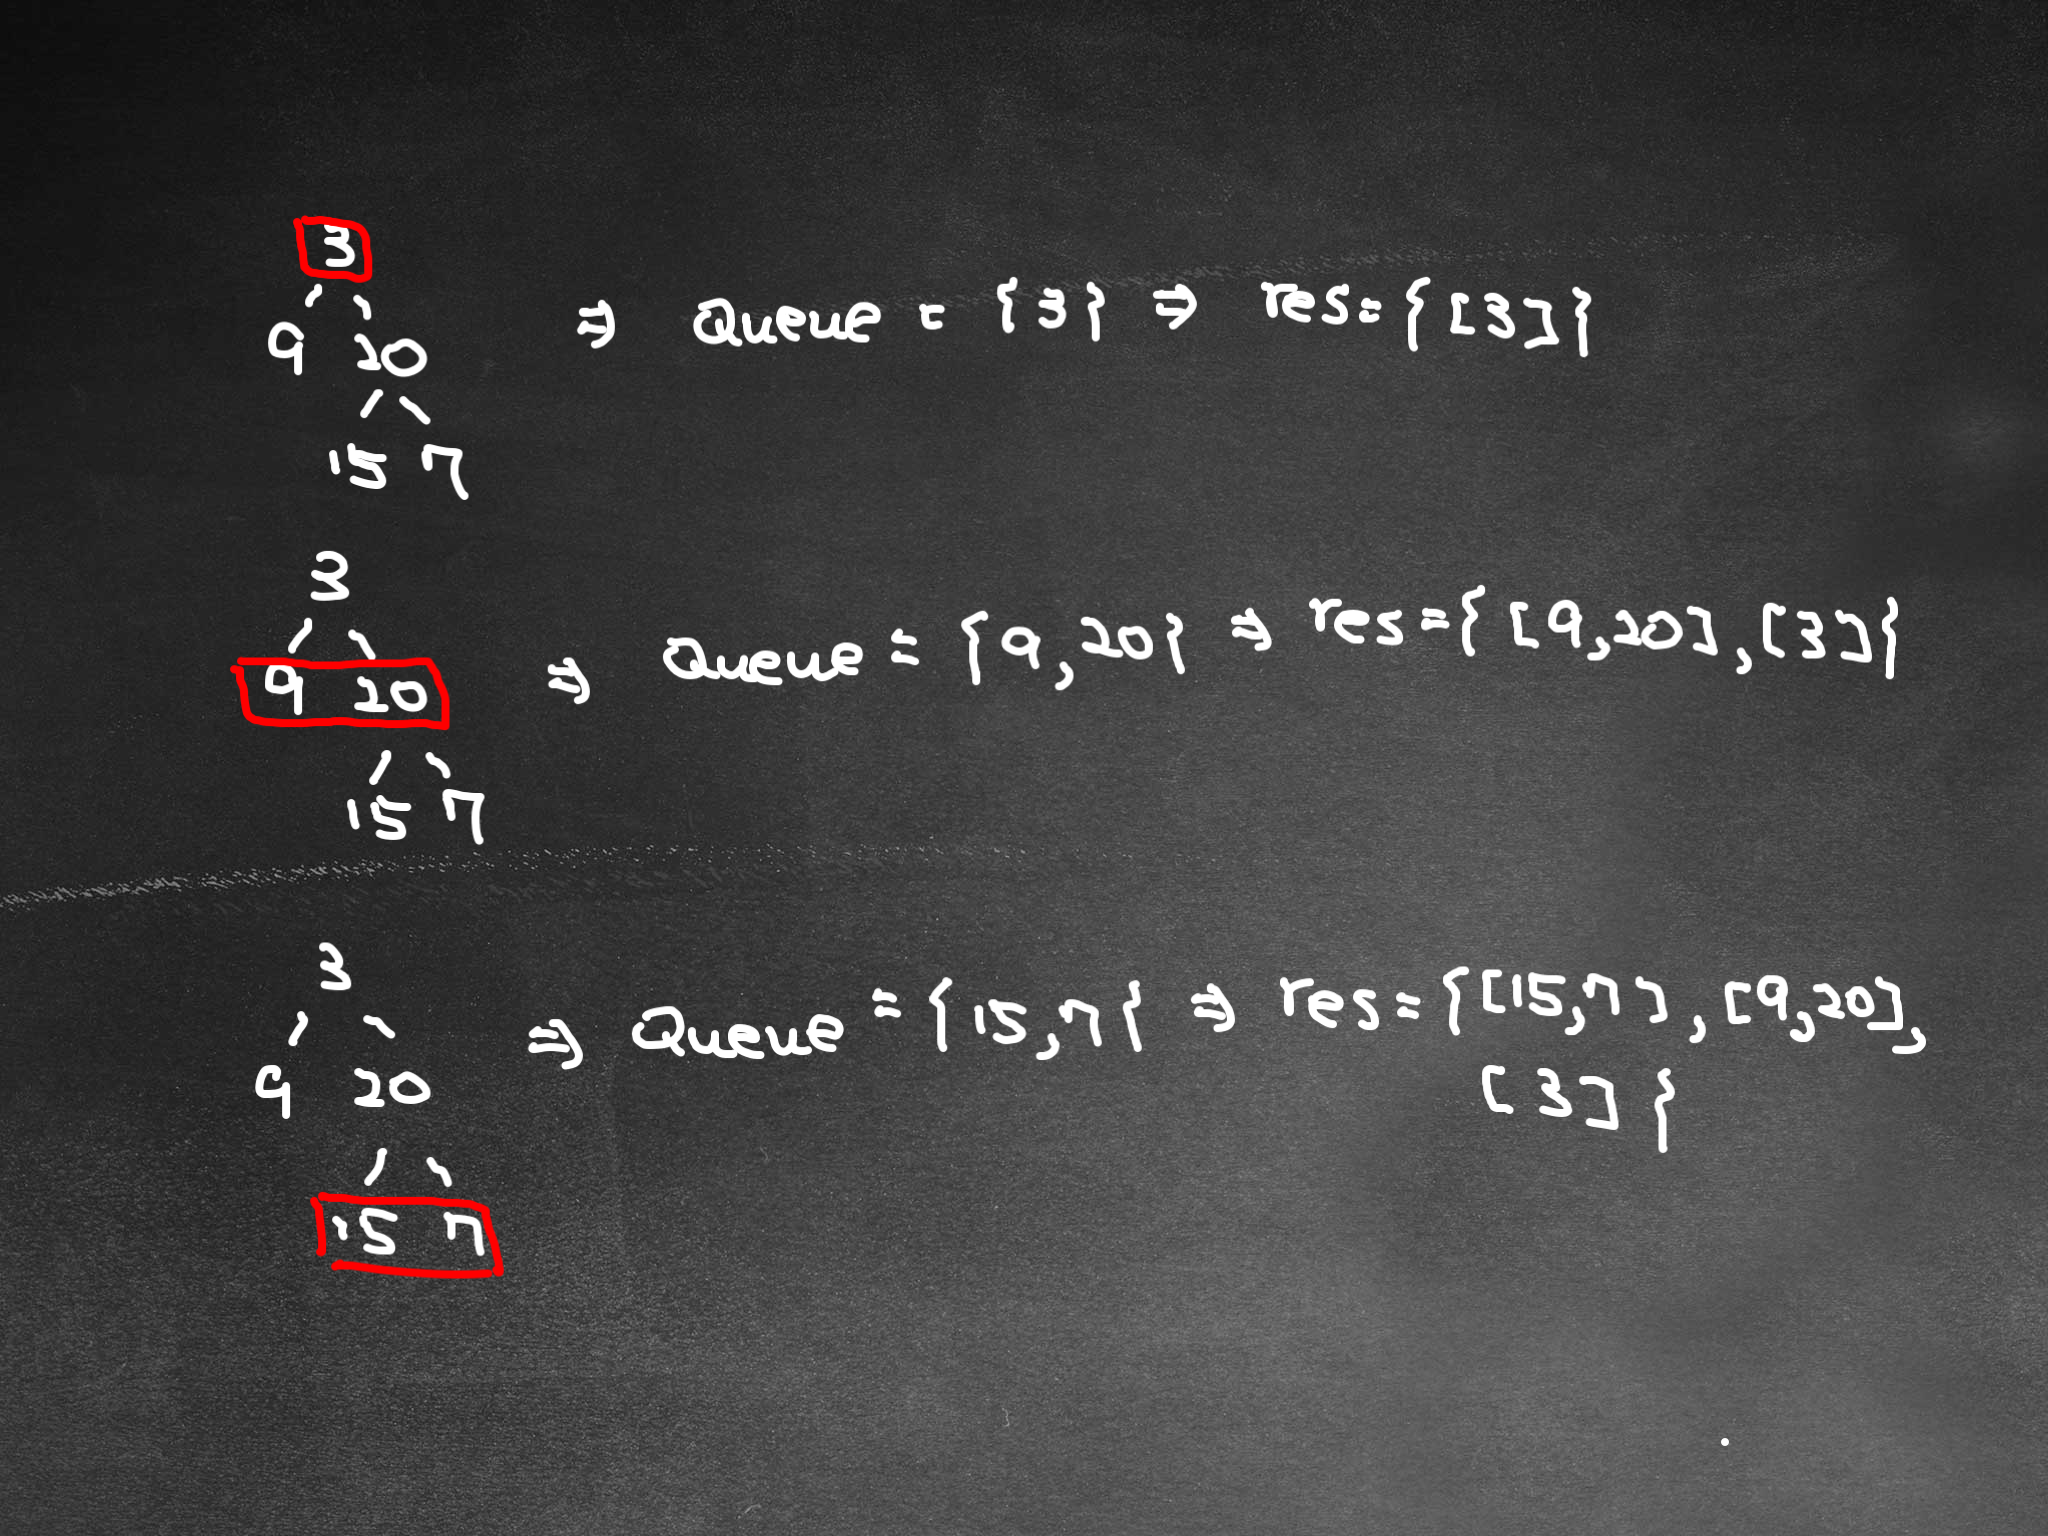 3
9 20
15 7
⇒ Queue = {3} ⇒ res = {[3]}
3
9 20
15 7
⇒ Queue = {9,20} ⇒ res = {[9,20],[3]}
3
9 20
15 7
⇒ Queue = {15,7} ⇒ res = {[15,7],[9,20],
[3]}